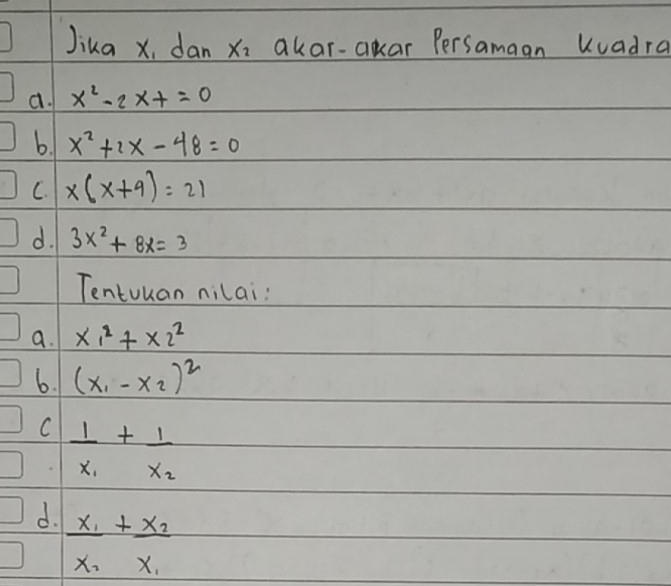 Jika x₁ dan x₂ akar-akar Persamaan kuadra
a. x² - 2x + = 0
b. x² + 2x - 48 = 0
c. x(x+9) = 21
d. 3x² + 8x = 3
Tentukan nilai:
a. x₁² + x₂²
b. (x₁ - x₂)²
c 1/x₁ + 1/x₂
d. x₁/x₂ + x₂/x₁